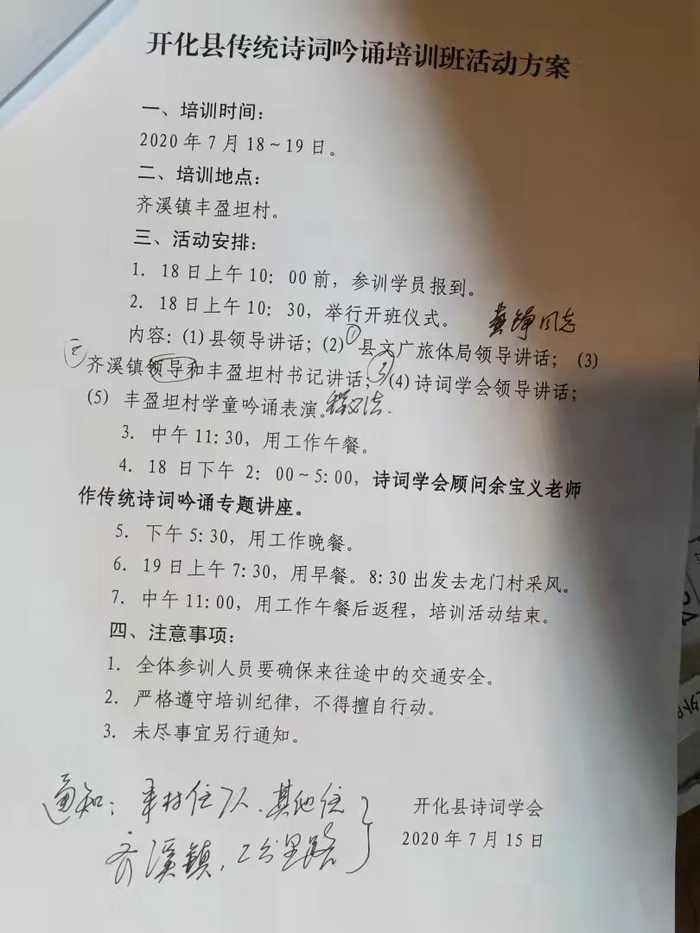 开化县传统诗词吟诵培训班活动方案
一、培训时间：
2020年7月18~19日。
二、培训地点：
齐溪镇丰盈坦村。
三、活动安排：
1. 18日上午10：00前，参训学员报到。
2. 18日上午10：30，举行开班仪式。
同志
内容：(1)县领导讲话；(2)①县文广旅体局领导讲话；(3)
齐溪镇领导和丰盈坦村书记讲话；(4)诗词学会领导讲话；
(5) 丰盈坦村学童吟诵表演。
3. 中午11：30，用工作午餐。
4. 18日下午2：00~5：00，诗词学会顾问余宝义老师
作传统诗词吟诵专题讲座。
5. 下午5：30，用工作晚餐。
6. 19日上午7：30，用早餐。8：30出发去龙门村采风。
7. 中午11：00，用工作午餐后返程，培训活动结束。
四、注意事项：
1. 全体参训人员要确保来往途中的交通安全。
2. 严格遵守培训纪律，不得擅自行动。
3. 未尽事宜另行通知。
通知：本村住7人、其他住
齐溪镇，2公里路
开化县诗词学会
2020年7月15日